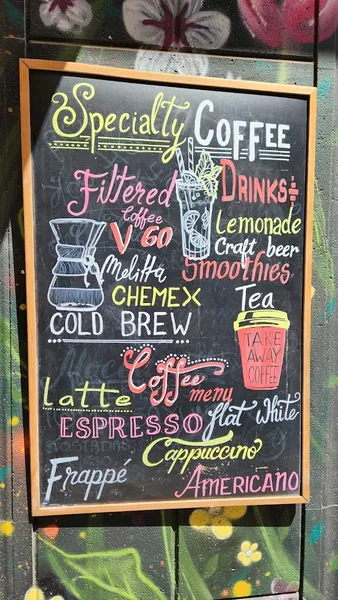 Specialty COFFEE
Filtered
Coffee
V'60
Melitta
CHEMEX
COLD BREW
DRINKS:
Lemonade
Craft beer
Smoothies
Tea
TAKE
AWAY
COFFEE
Coffee
menu
Latte
ESPRESSO
flat White
Cappuccino
Frappé
AMERICANO